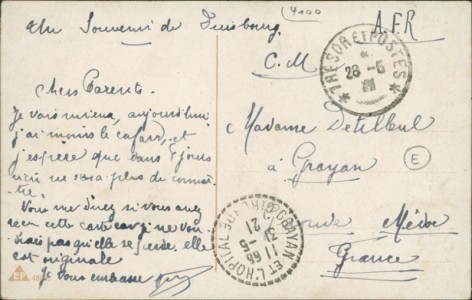 Un Souvenir de Duisbourg
4100
A.F.R
C.M
TRESOR ET POSTES
28-5
Chers Parents.
Je vais mieux, aujourd'hui
j'ai moins le cafard, et
j'espère que dans 8 jours
ne sera plus de
Vous me direz si vous avez
reçu cette carte car je ne
pas qu'elle se perde. elle
est originale
Je vous embrasse
Madame
à Grayan
Médoc
France
E
GRAYAN ET L'HOPITAL
31-5
21